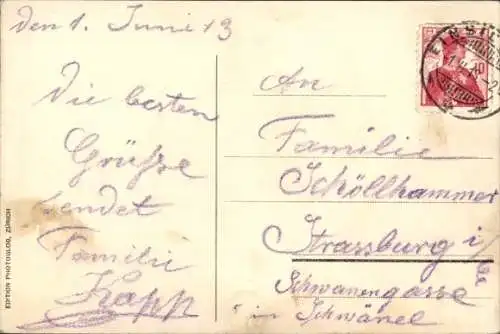 den 1. Juni 13
Die besten
Grüsse
sendet
Familie
Kapp
An
Familie
Schöllhammer
Strassburg i/
Schwanengasse
in Schwänel
EDITION PHOTOGLOB, ZÜRICH
EINSI
10